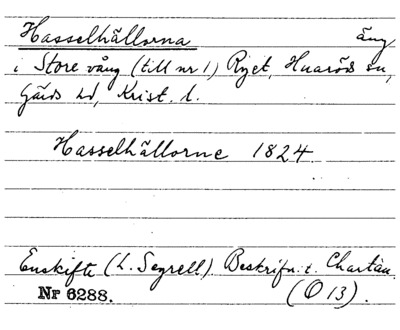 Hasselhällorna äng
i Store vång (till nr 1) Ryet, Huaröds sn,
Gärds hd, Krist. l.
Hasselhällorne 1824
Enskifte (L. Segrell). Beskrifn. t. Chartan.
Nr 6288. (O 13).